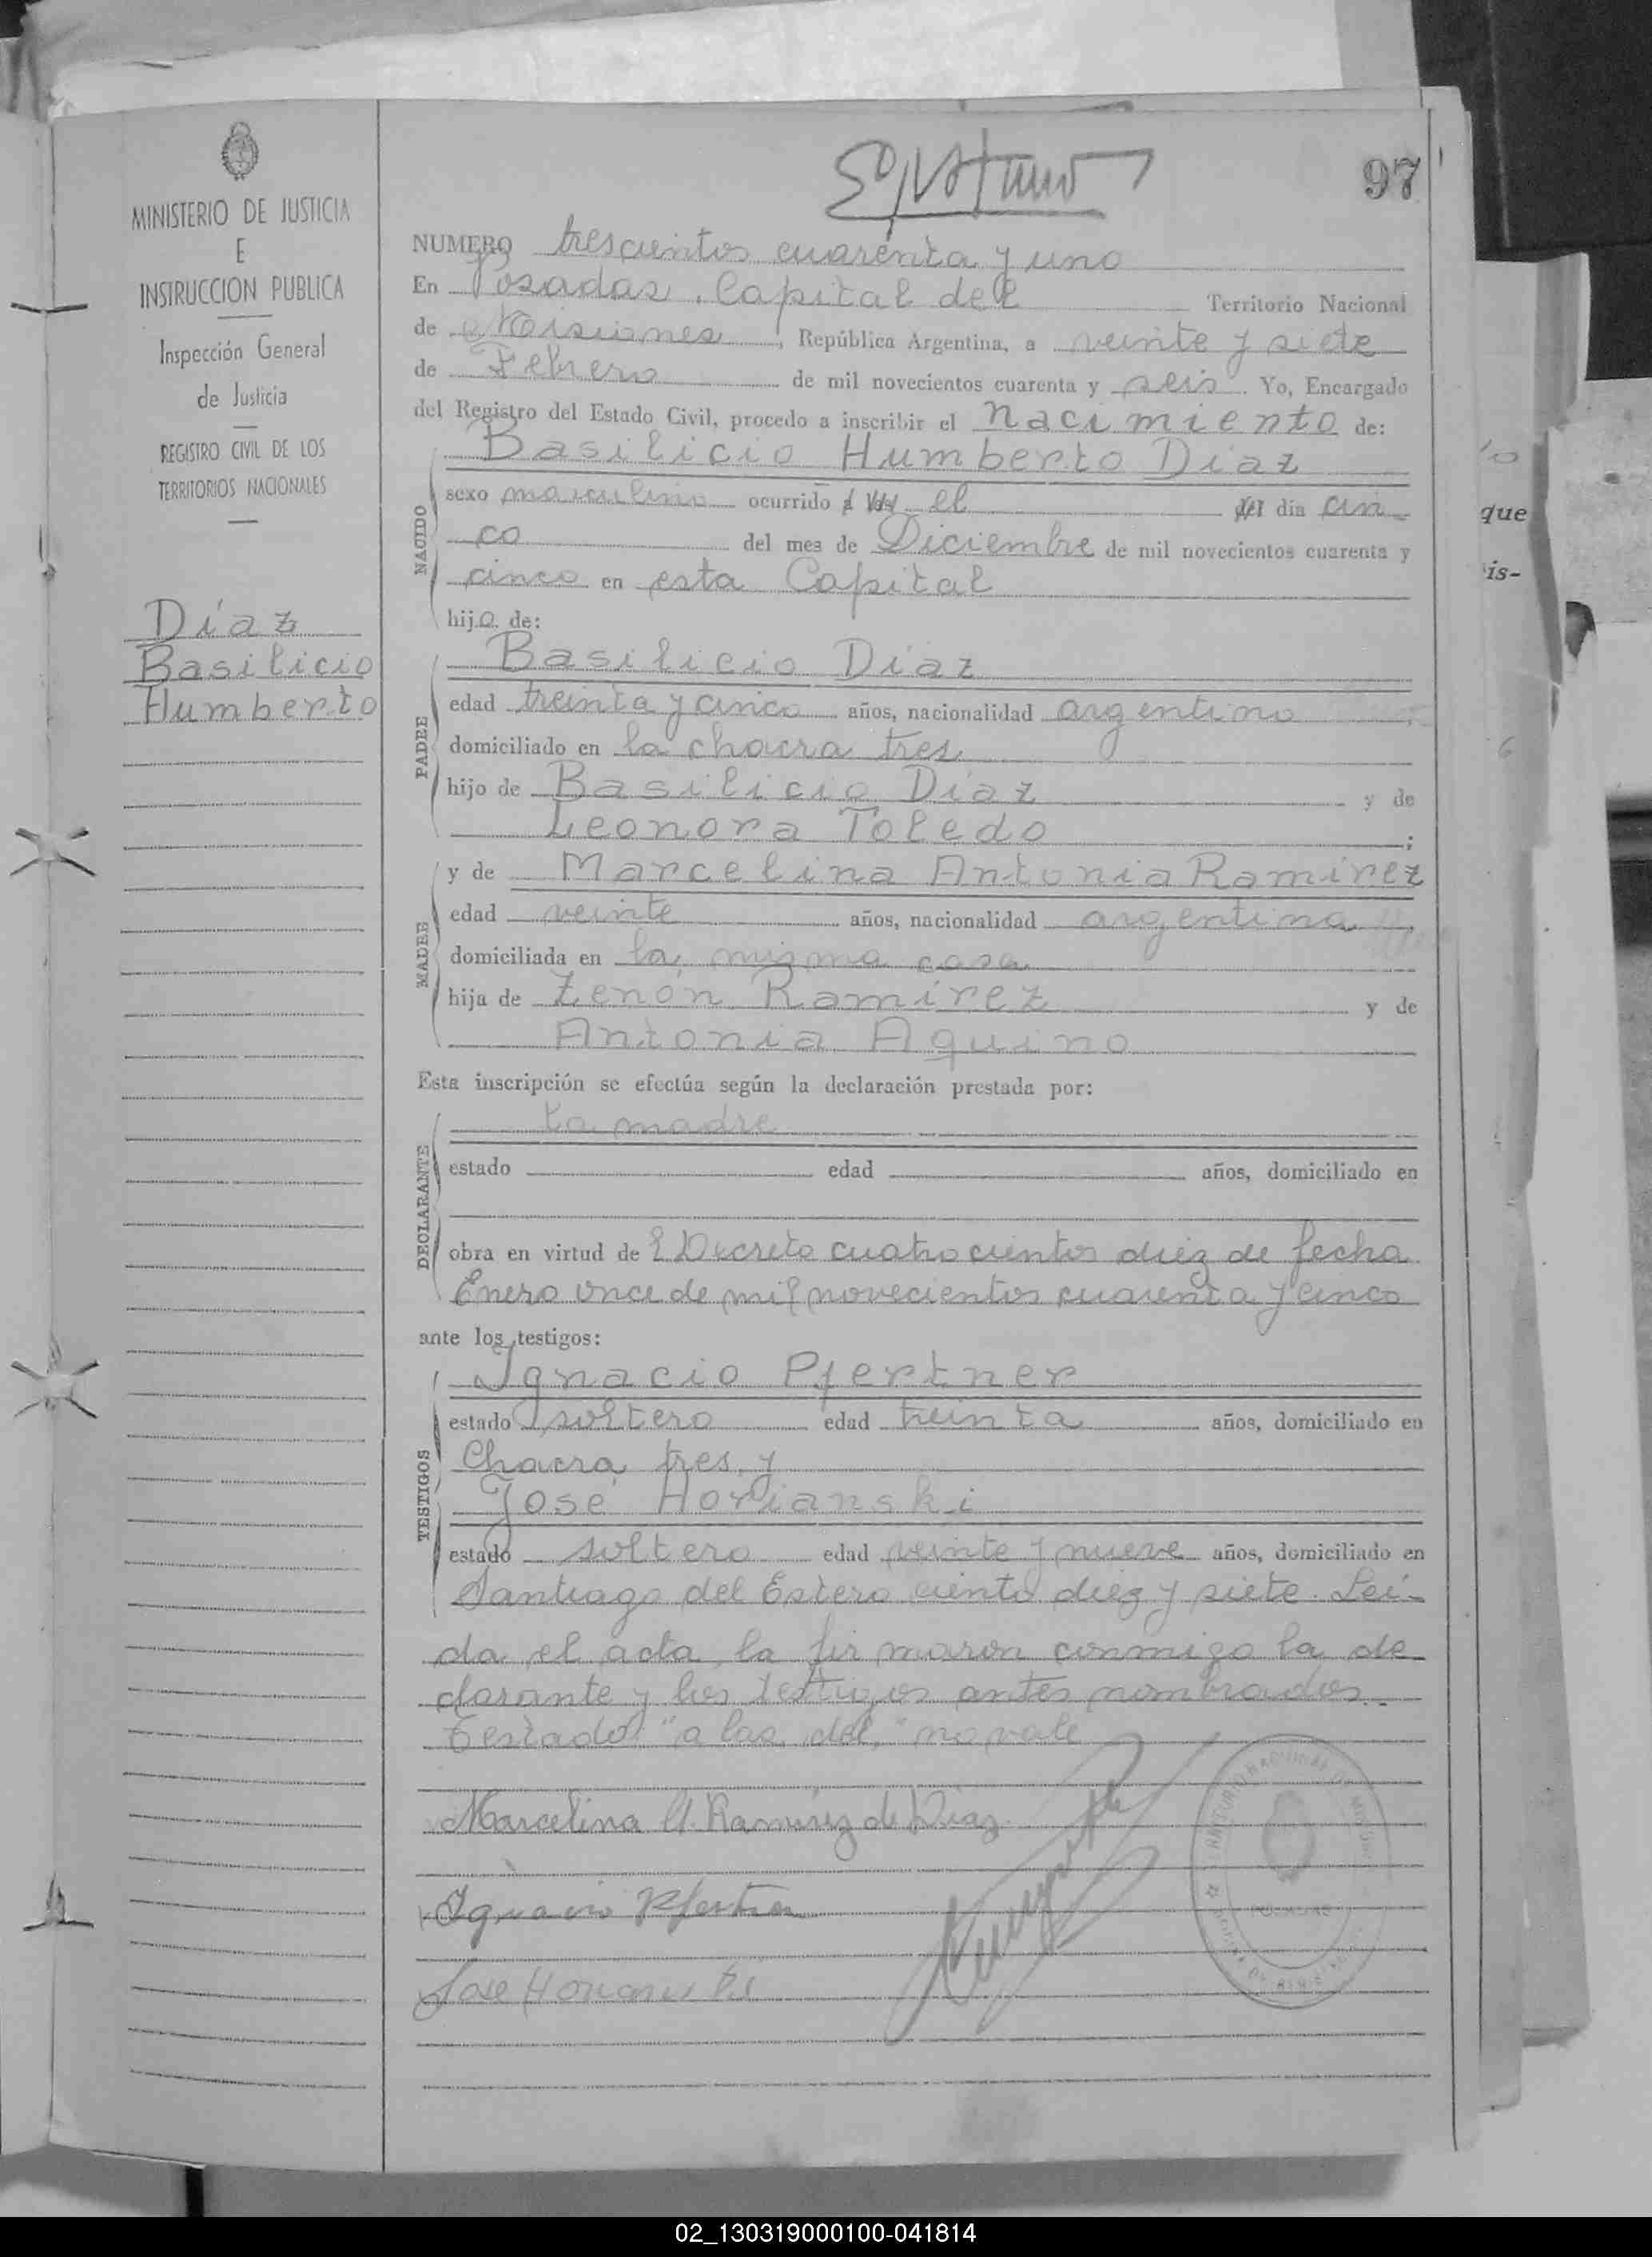 97
MINISTERIO DE JUSTICIA
E
INSTRUCCION PUBLICA
Inspección General
de Justicia
REGISTRO CIVIL DE LOS
TERRITORIOS NACIONALES
Díaz
Basilicio
Humberto
NUMERO trescientos cuarenta y uno
En Posadas, Capital del Territorio Nacional
de Misiones, República Argentina, a veinte y siete
de Febrero de mil novecientos cuarenta y seis. Yo, Encargado
del Registro del Estado Civil, procedo a inscribir el nacimiento de:
Basilicio Humberto Díaz
NACIDO
sexo masculino ocurrido a las el del día cin-
co del mes de Diciembre de mil novecientos cuarenta y
cinco en esta Capital
hijo de:
Basilicio Díaz
PADRE
edad treinta y cinco años, nacionalidad argentino,
domiciliado en la chacra tres
hijo de Basilicio Díaz y de
Leonora Toledo;
y de Marcelina Antonia Ramírez
MADRE
edad veinte años, nacionalidad argentina,
domiciliada en la misma casa
hija de Zenón Ramírez y de
Antonia Aquino
Esta inscripción se efectúa según la declaración prestada por:
La madre
DECLARANTE
estado edad años, domiciliado en
obra en virtud de l Decreto cuatrocientos diez de fecha
Enero once de mil novecientos cuarenta y cinco
ante los testigos:
Ignacio Pfertner
TESTIGOS
estado soltero edad treinta años, domiciliado en
Chacra tres y
José Horianski
estado soltero edad veinte y nueve años, domiciliado en
Santiago del Estero ciento diez y siete. Leí-
da el acta, la firmaron conmigo la de
clarante y los testigos antes nombrados.
Testado: "a las, del," no vale
Marcelina A. Ramírez de Díaz
Ignacio Pfertner
Jose Horianski
que
is-
02_130319000100-041814